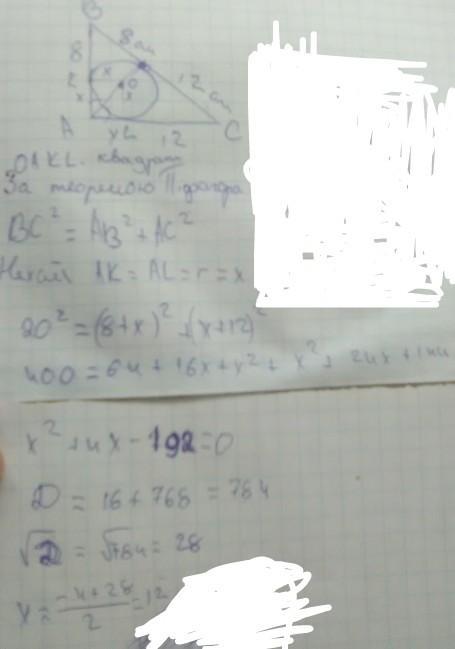 B
8
8 см
x
O
x
12 см
x
A
x L
12
C
OAKL - квадрат
За теоремою Піфагора
BC² = AB² + AC²
Нехай AK = AL = r = x
20² = (8+x)² + (x+12)²
400 = 64 + 16x + x² + x² + 24x + 144
x² + 4x - 192 = 0
D = 16 + 768 = 784
√D = √784 = 28
x = -4+28 / 2 = 12